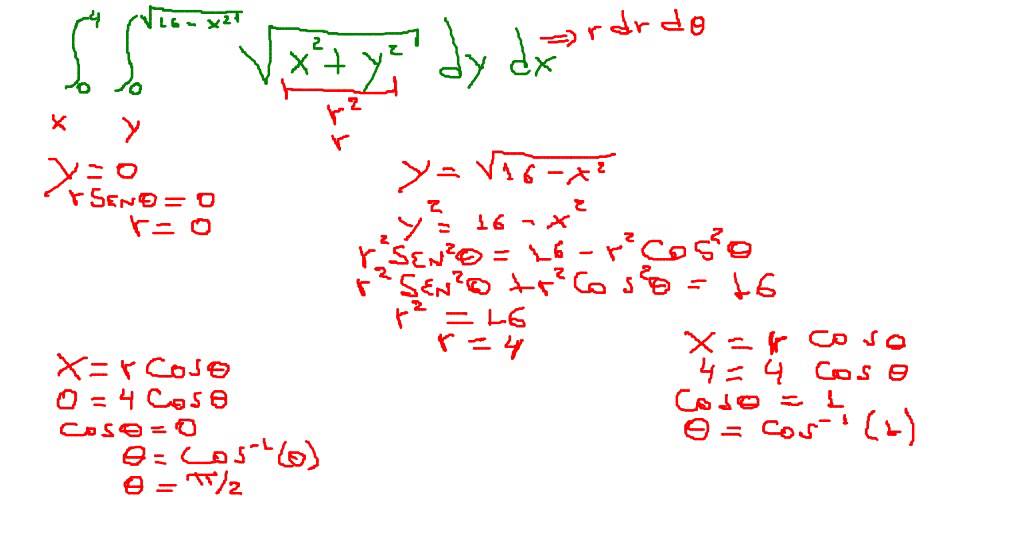 ∫₀⁴ ∫₀^√(16 - x²) √(x² + y²) dy dx ⇒ r dr dθ
r²
x y r
y = 0
r SENθ = 0
r = 0
y = √(16 - x²)
y² = 16 - x²
r² SEN²θ = 16 - r² Cos²θ
r² SEN²θ + r² Cos²θ = 16
r² = 16
r = 4
x = r Cosθ
0 = 4 Cosθ
cosθ = 0
θ = Cos⁻¹(0)
θ = π/2
x = r Cosθ
4 = 4 Cosθ
Cosθ = 1
θ = Cos⁻¹(1)